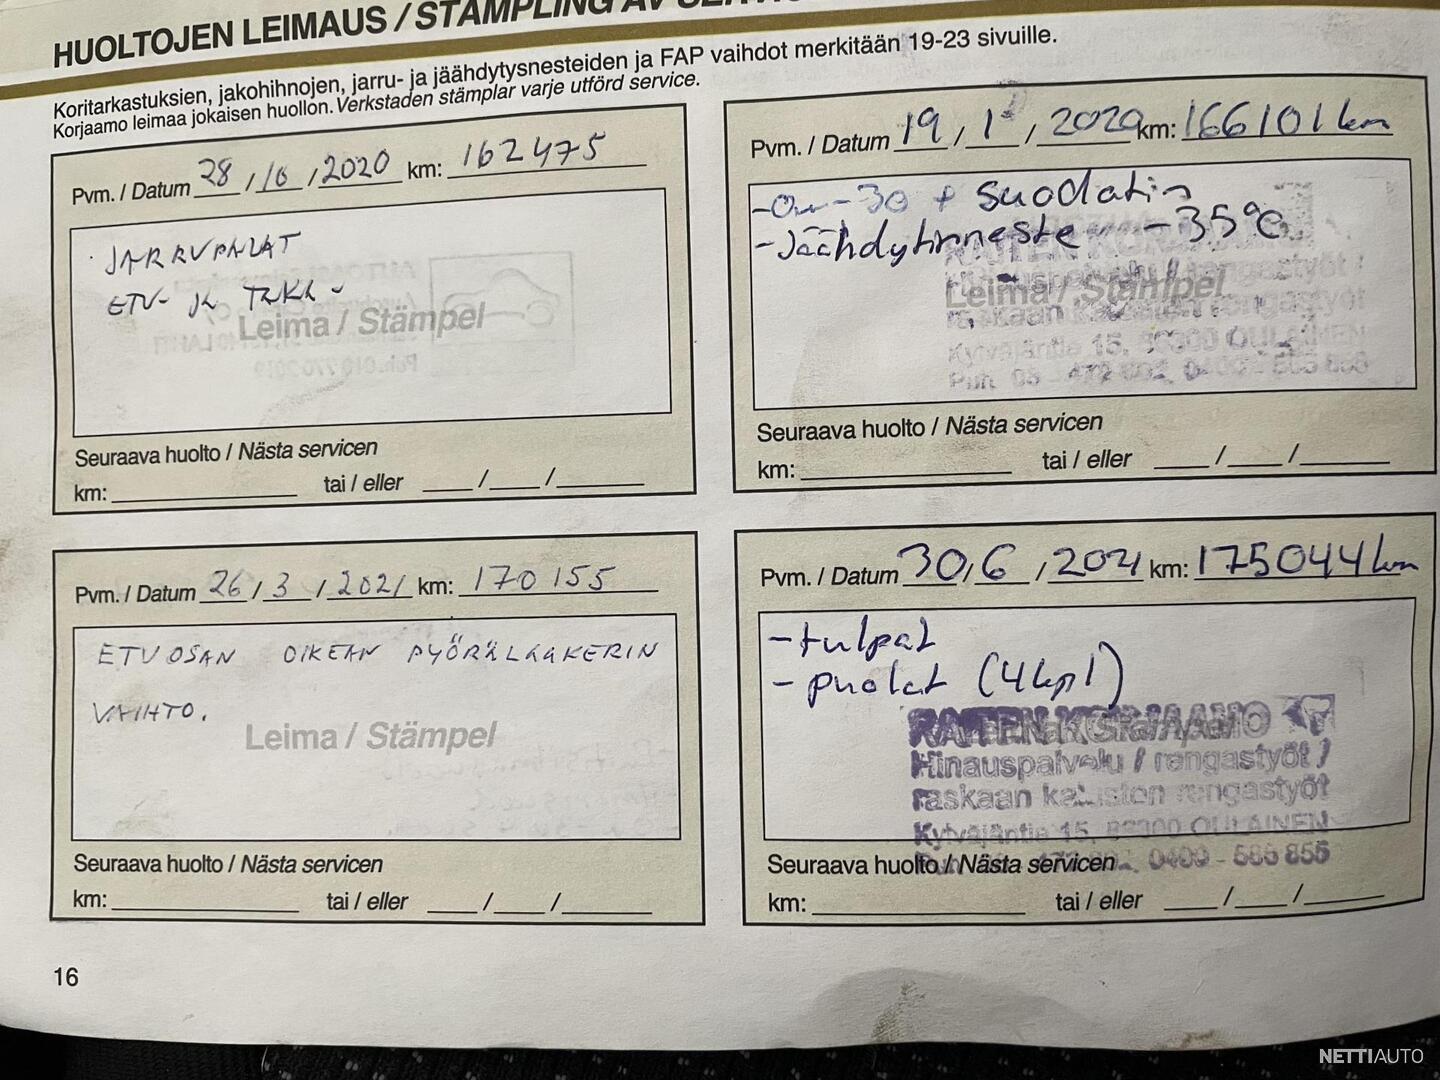 HUOLTOJEN LEIMAUS / STÄMPLING AV
Koritarkastuksien, jakohihnojen, jarru- ja jäähdytysnesteiden ja FAP vaihdot merkitään 19-23 sivuille.
Korjaamo leimaa jokaisen huollon. Verkstaden stämplar varje utförd service.
Pvm. / Datum 28 / 10 / 2020 km: 162475
JARRUPALAT
ETU- JA TAKA -
Leima / Stämpel
Seuraava huolto / Nästa servicen
km: tai / eller / /
Pvm. / Datum 19 / 1 / 2020 km: 166101 km
-30 + suodatin
- Jäähdytinneste -35°C
Leima / Stämpel
RAITEN KORJAAMO
Hinauspalvelu / rengastyöt /
raskaan kaluston rengastyöt
Kylväjäntie 15, 86300 OULAINEN
Puh. 08 - 0400 - 585 855
Seuraava huolto / Nästa servicen
km: tai / eller / /
Pvm. / Datum 26 / 3 / 2021 km: 170 155
ETUOSAN OIKEAN PYÖRÄLAAKERIN
VAIHTO.
Leima / Stämpel
Seuraava huolto / Nästa servicen
km: tai / eller / /
Pvm. / Datum 30 / 6 / 2021 km: 175044 km
- tulpat
- puolat (4kpl)
RAITEN KORJAAMO
Hinauspalvelu / rengastyöt /
raskaan kaluston rengastyöt
Kylväjäntie 15, 86300 OULAINEN
0400 - 585 855
Seuraava huolto / Nästa servicen
km: tai / eller / /
16
NETTIAUTO